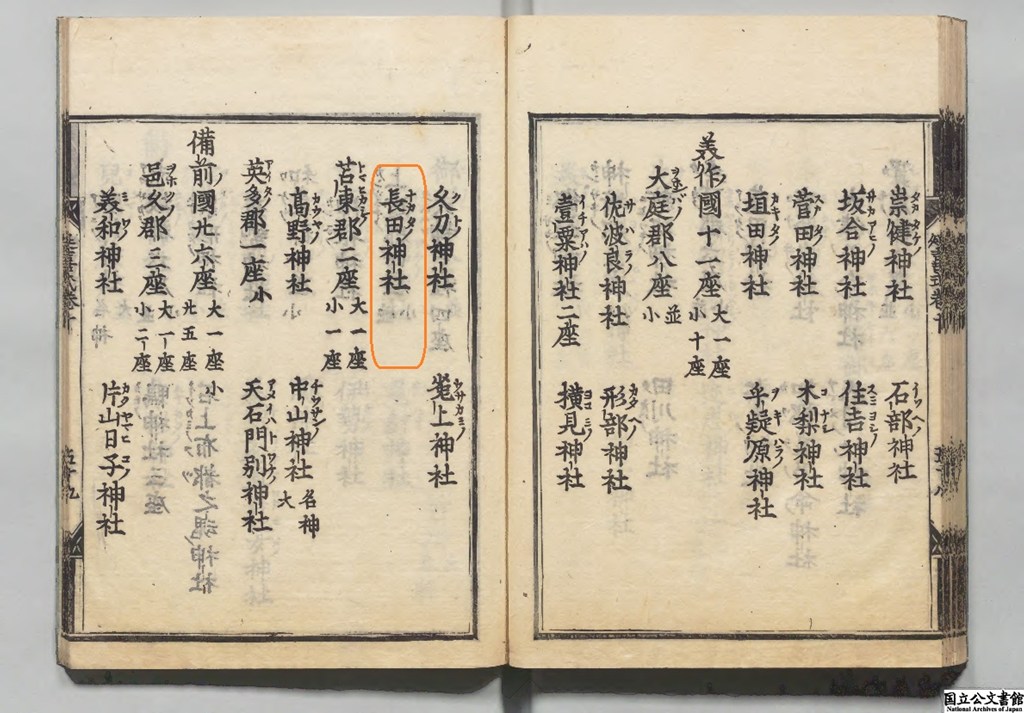 崇健神社 石部神社
坂合神社 住吉神社
菅田神社 木梨神社
垣田神社 乎疑原神社
美作國十一座 大一座 小十座
大庭郡八座 並小
佐波良神社 形部神社
壹粟神社二座 横見神社
久刀神社 兎上神社
長田神社
苫東郡二座 大一座 小一座
高野神社 中山神社 名神大
英多郡一座 小 天石門別神社
備前國廿六座 大一座 小廿五座
邑久郡三座 大一座 小二座
美和神社 片山日子神社
国立公文書館
National Archives of Japan